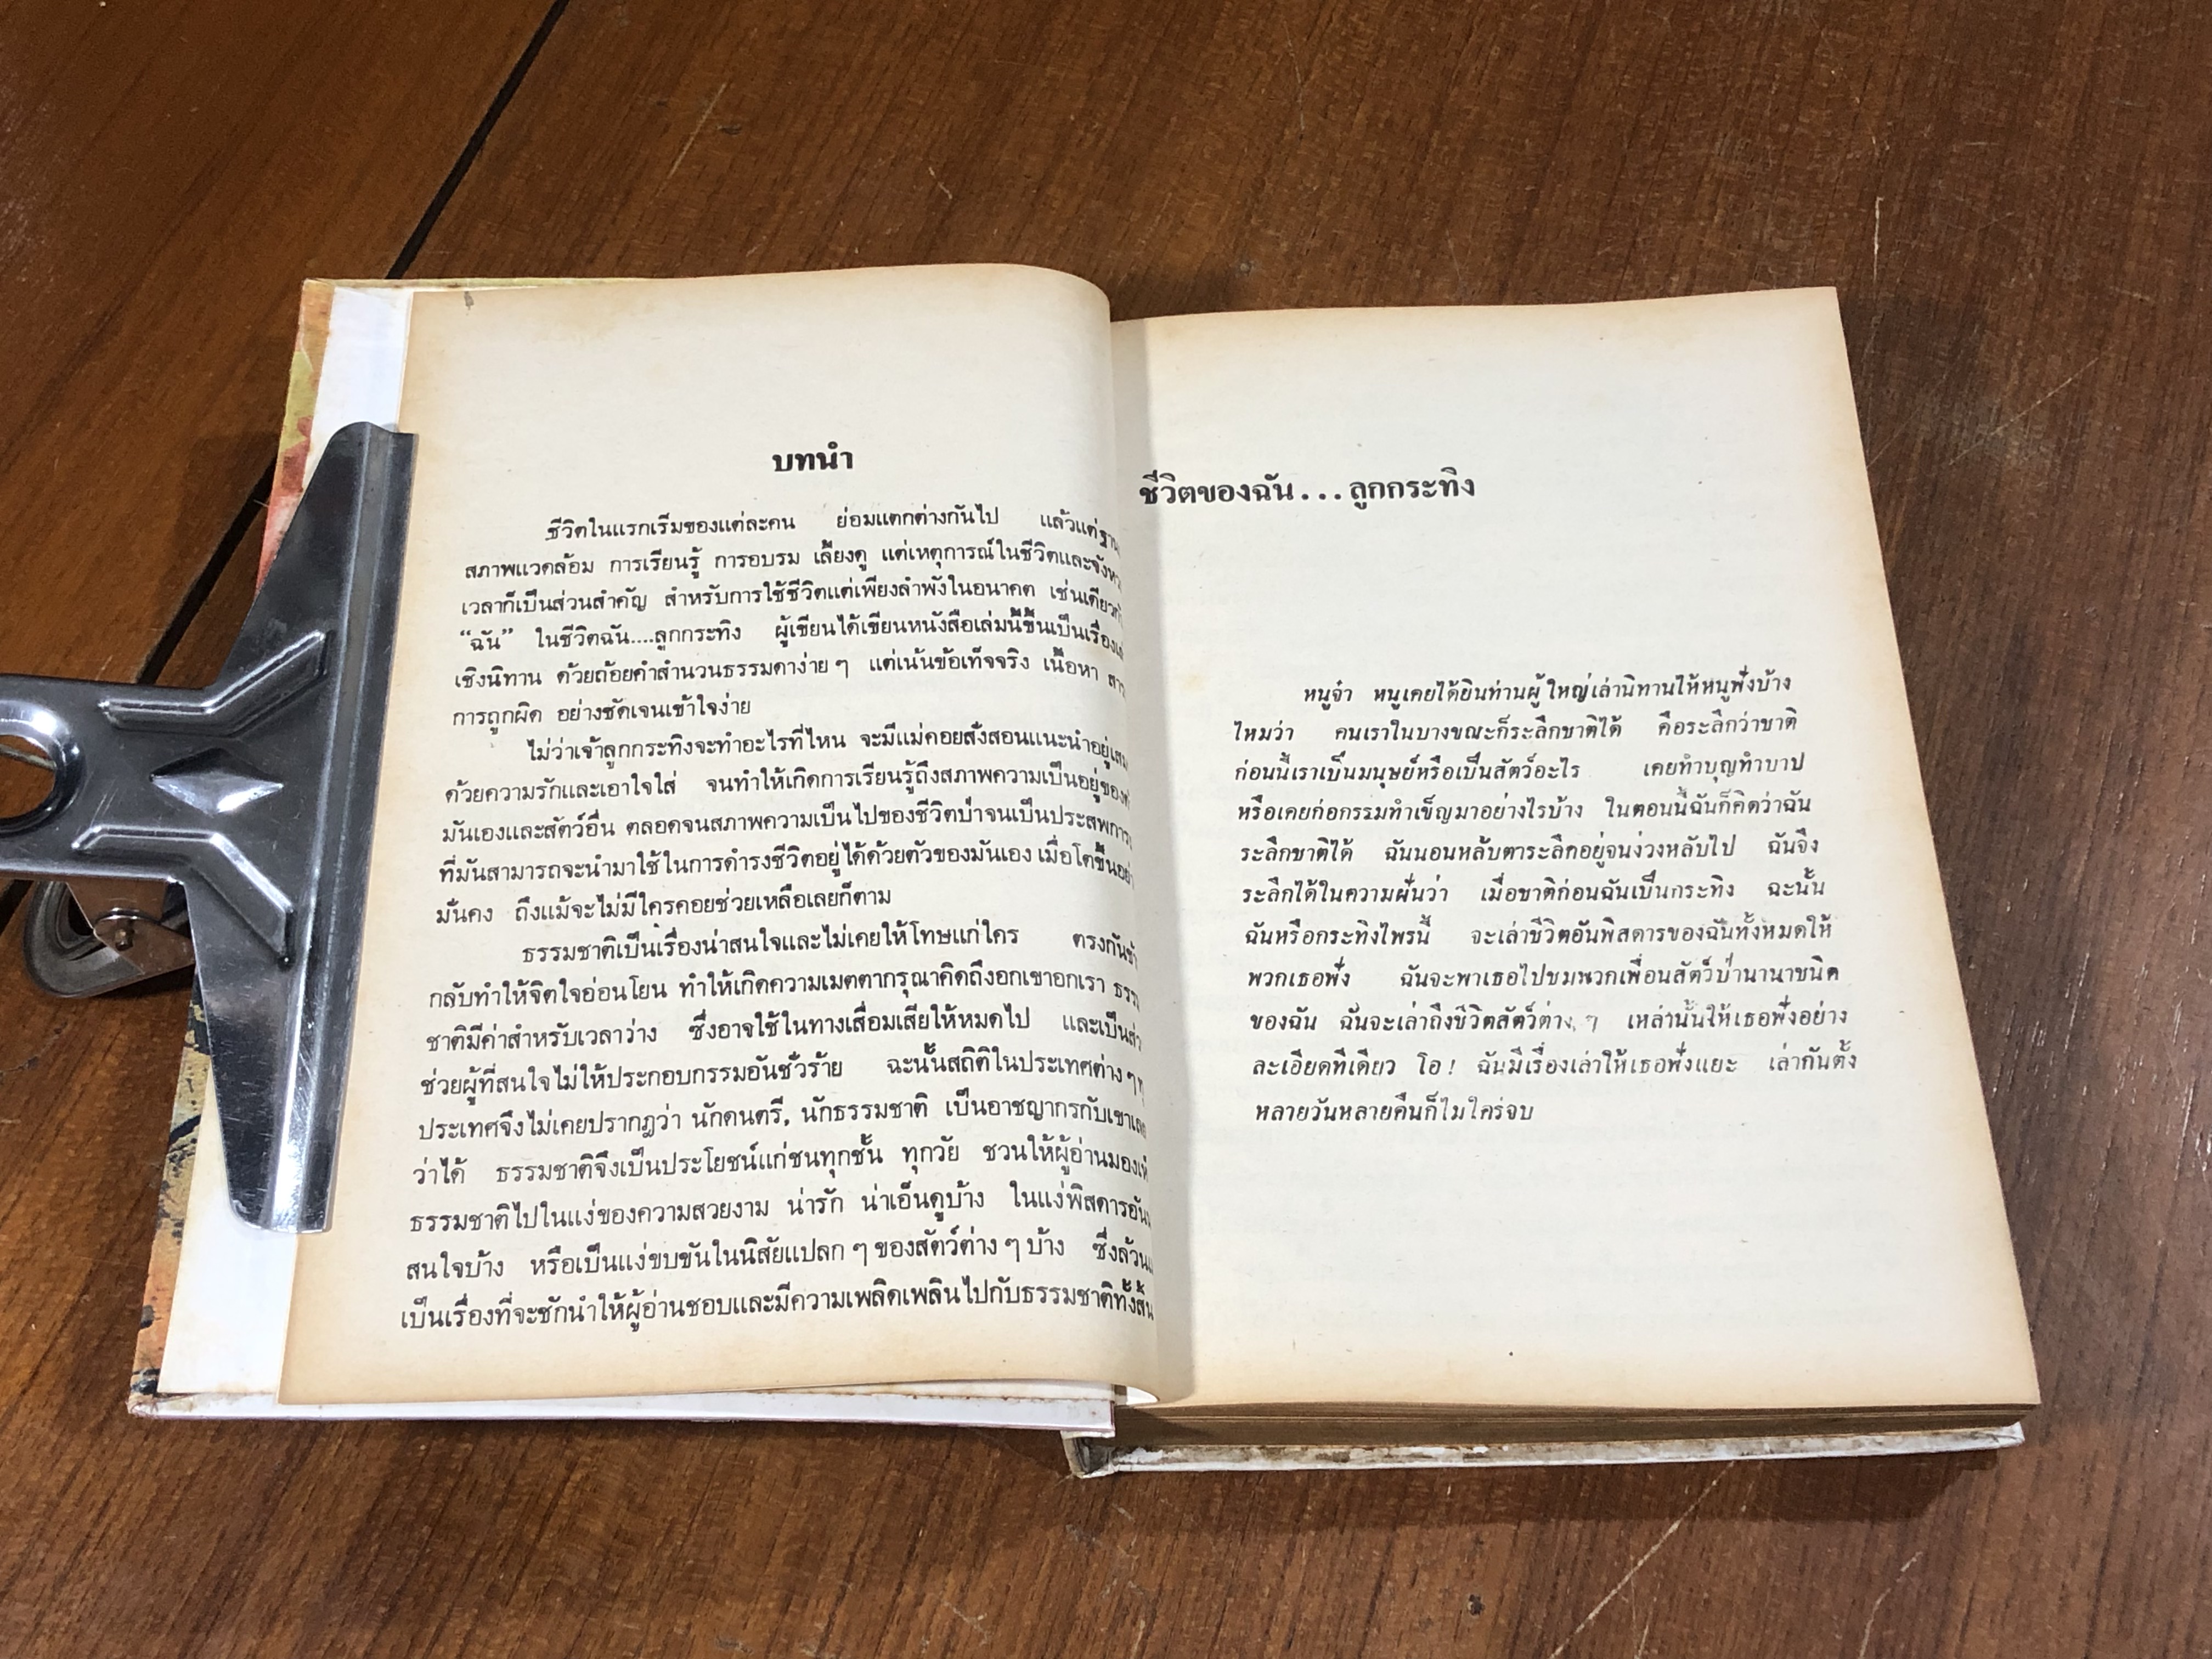 บทนำ
ชีวิตในแรกเริ่มของแต่ละคน ย่อมแตกต่างกันไป แล้วแต่
สภาพแวดล้อม การเรียนรู้ การอบรม เลี้ยงดู แต่เหตุการณ์ในชีวิตและ
เวลาก็เป็นส่วนสำคัญ สำหรับการใช้ชีวิตแต่เพียงลำพังในอนาคต
“ฉัน” ในชีวิตฉัน....ลูกกระทิง ผู้เขียนได้เขียนหนังสือเล่มนี้ขึ้นเป็น
เชิงนิทาน ด้วยถ้อยคำสำนวนธรรมดาง่าย ๆ แต่เน้นข้อเท็จจริง เนื้อหา
การถูกผิด อย่างชัดเจนเข้าใจง่าย
ไม่ว่าเจ้าลูกกระทิงจะทำอะไรที่ไหน จะมีแม่คอยสั่งสอนแนะนำ
ด้วยความรักและเอาใจใส่ จนทำให้เกิดการเรียนรู้ถึงสภาพความเป็นอยู่
มันเองและสัตว์อื่น ตลอดจนสภาพความเป็นไปของชีวิตป่าจนเป็น
ที่มันสามารถจะนำมาใช้ในการดำรงชีวิตอยู่ได้ด้วยตัวของมันเอง เมื่อโตขึ้น
มั่นคง ถึงแม้จะไม่มีใครคอยช่วยเหลือเลยก็ตาม
ธรรมชาติเป็นเรื่องน่าสนใจและไม่เคยให้โทษแก่ใคร
กลับทำให้จิตใจอ่อนโยน ทำให้เกิดความเมตตากรุณาคิดถึงอกเขาอกเรา
ชาติมีค่าสำหรับเวลาว่าง ซึ่งอาจใช้ในทางเสื่อมเสียให้หมดไป และเป็น
ช่วยผู้ที่สนใจไม่ให้ประกอบกรรมอันชั่วร้าย ฉะนั้นสถิติในประเทศต่าง ๆ
ประเทศจึงไม่เคยปรากฎว่า นักดนตรี, นักธรรมชาติ เป็นอาชญากรกับเขา
ว่าได้ ธรรมชาติจึงเป็นประโยชน์แก่ชนทุกชั้น ทุกวัย ชวนให้ผู้อ่านมอง
ธรรมชาติไปในแง่ของความสวยงาม น่ารัก น่าเอ็นดูบ้าง ในแง่พิสดาร
สนใจบ้าง หรือเป็นแง่ขบขันในนิสัยแปลก ๆ ของสัตว์ต่าง ๆ บ้าง
เป็นเรื่องที่จะชักนำให้ผู้อ่านชอบและมีความเพลิดเพลินไปกับธรรมชาติทั้งสิ้น
ชีวิตของฉัน...ลูกกระทิง
หนูจ๋า หนูเคยได้ยินท่านผู้ใหญ่เล่านิทานให้หนูฟังบ้าง
ไหมว่า คนเราในบางขณะก็ระลึกชาติได้ คือระลึกว่าชาติ
ก่อนนี้เราเป็นมนุษย์หรือเป็นสัตว์อะไร เคยทำบุญทำบาป
หรือเคยก่อกรรมทำเข็ญมาอย่างไรบ้าง ในตอนนี้ฉันก็คิดว่าฉัน
ระลึกชาติได้ ฉันนอนหลับตาระลึกอยู่จนง่วงหลับไป ฉันจึง
ระลึกได้ในความฝันว่า เมื่อชาติก่อนฉันเป็นกระทิง ฉะนั้น
ฉันหรือกระทิงไพรนี้ จะเล่าชีวิตอันพิสดารของฉันทั้งหมดให้
พวกเธอฟัง ฉันจะพาเธอไปชมพวกเพื่อนสัตว์ป่านานาชนิด
ของฉัน ฉันจะเล่าถึงชีวิตสัตว์ต่าง ๆ เหล่านั้นให้เธอฟังอย่าง
ละเอียดทีเดียว โอ! ฉันมีเรื่องเล่าให้เธอฟังแยะ เล่ากันตั้ง
หลายวันหลายคืนก็ไม่ใคร่จบ